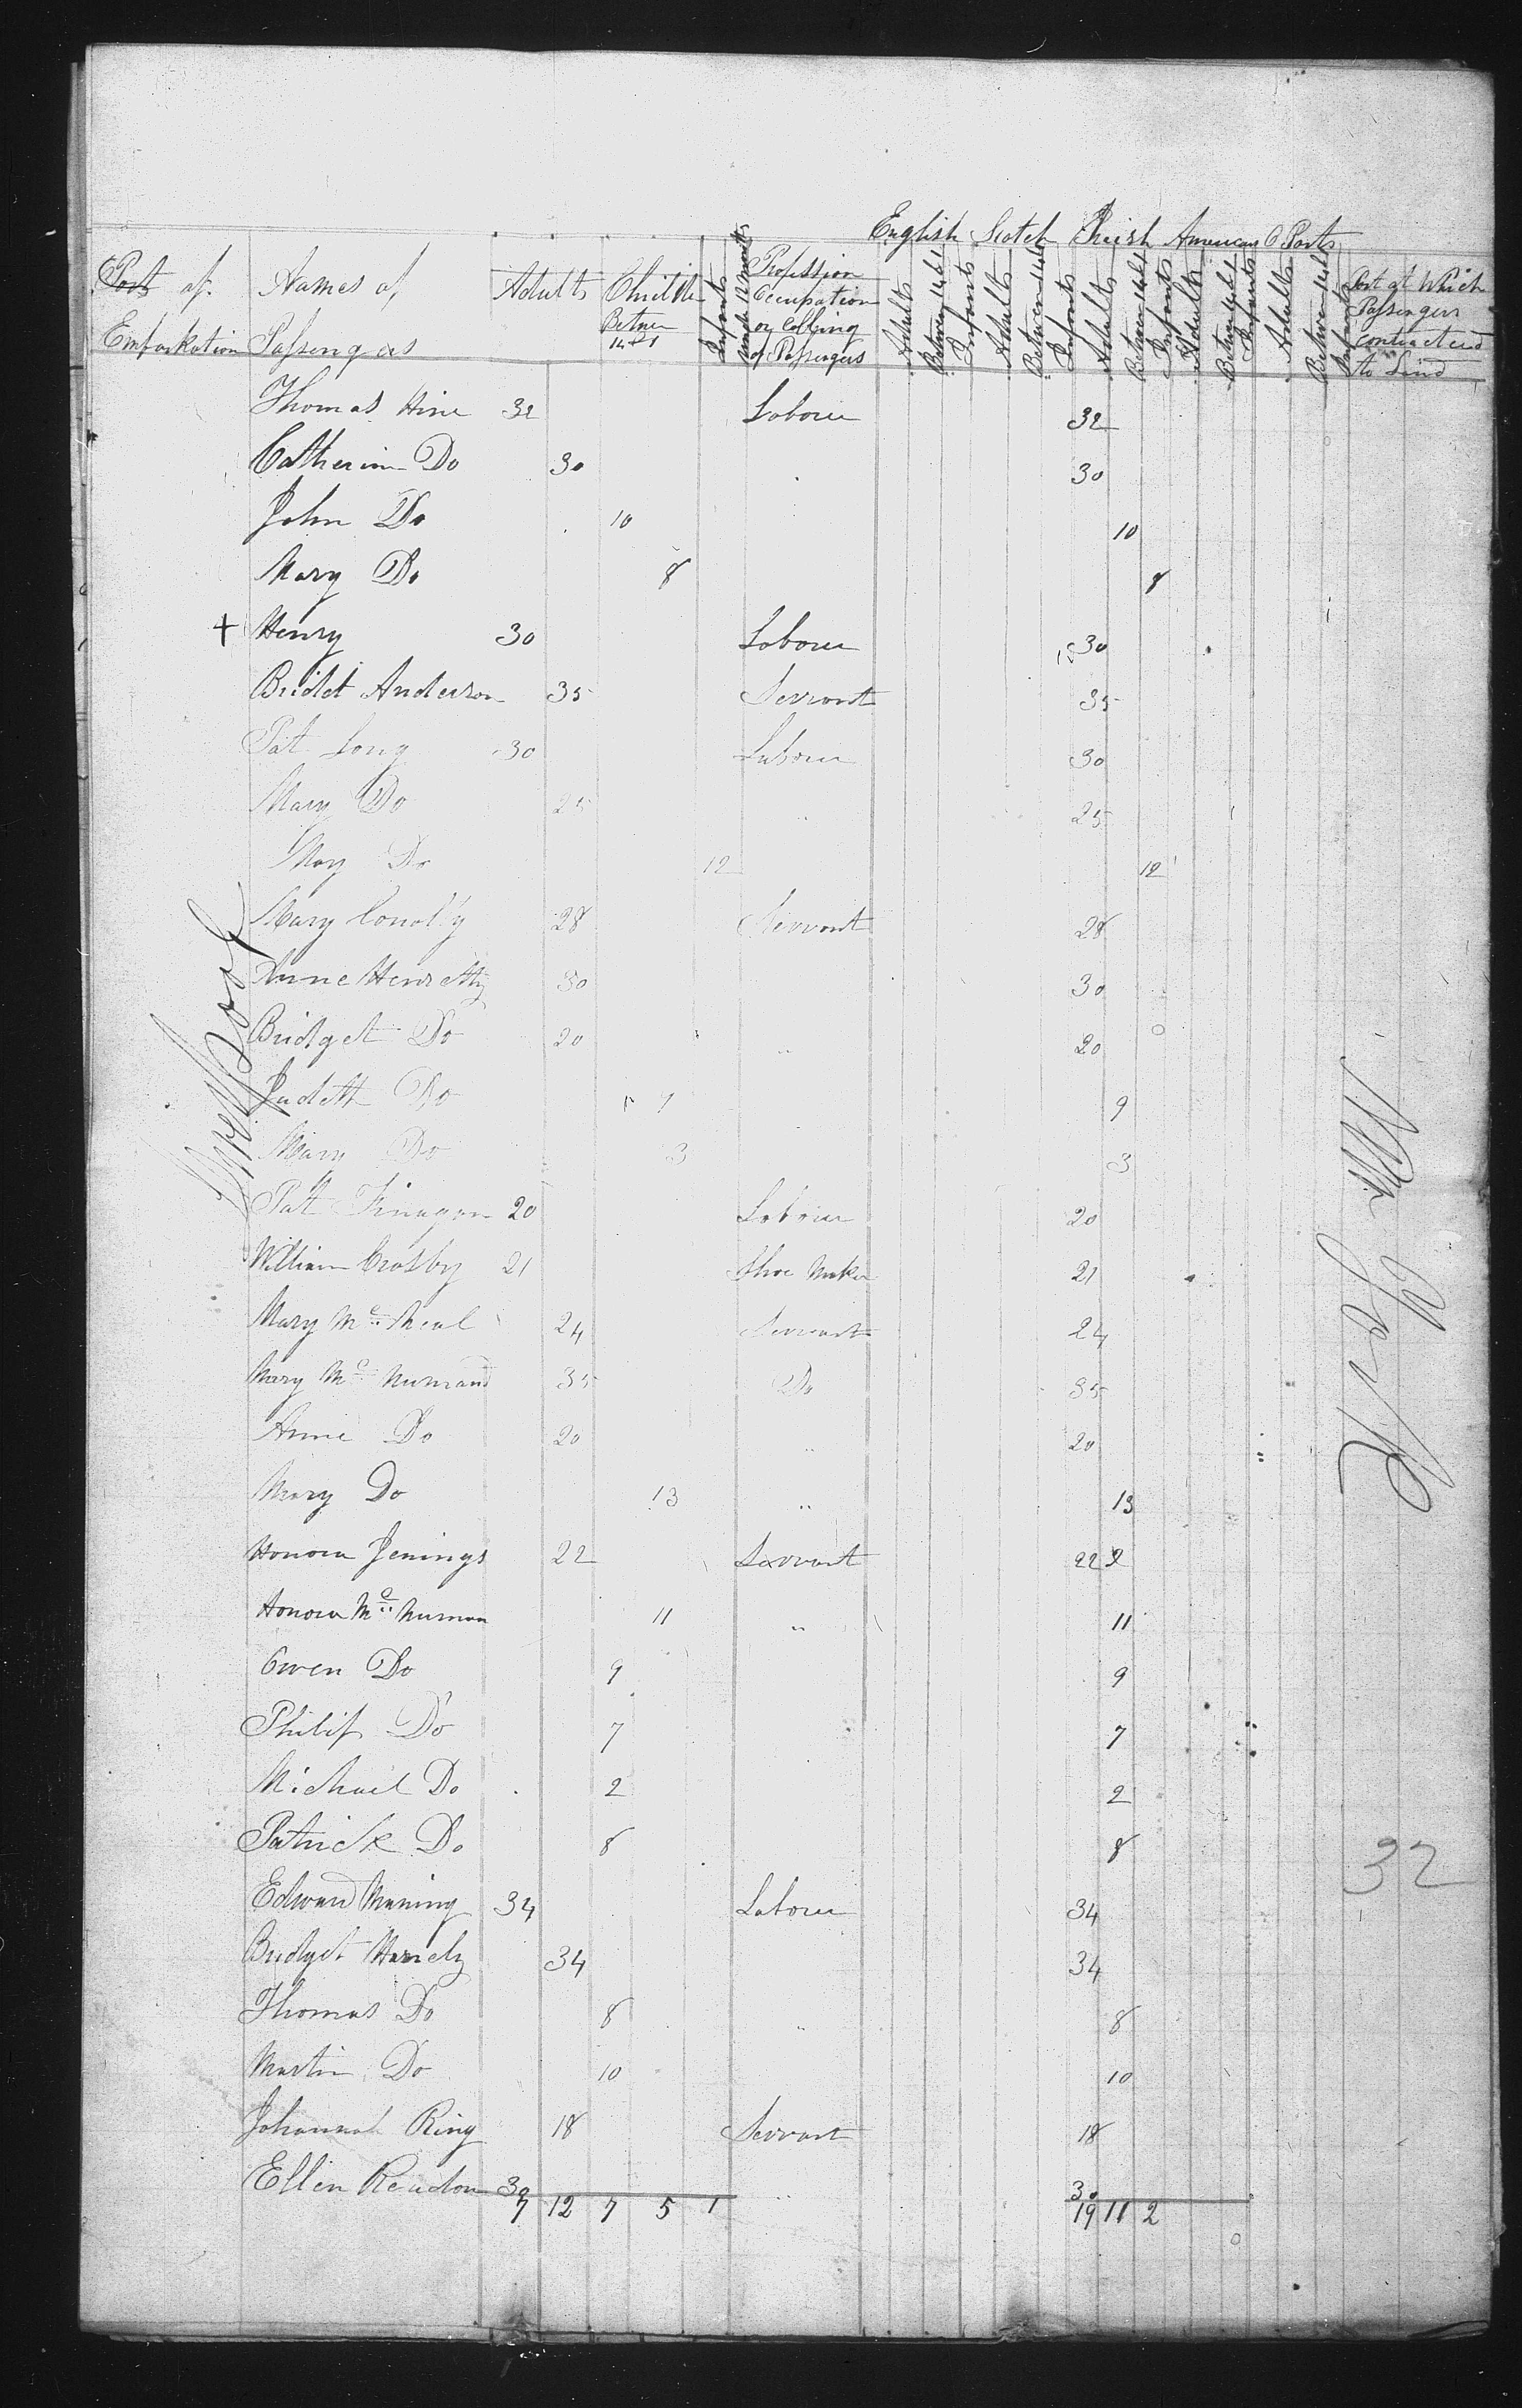 English Scotch Irish American C Ports
Port of Names of Adults Children Infants Profession Adults Between 14 & 1 Infants Adults Between 14 & 1 Infants Adults Between 14 & 1 Infants Adults Between 14 & 1 Infants Adults Between 14 & 1 Infants Port at Which
Between under 12 Months Occupation Passengers
or Calling contracted
Embarkation Passengers 14 & 1 of Passengers to Land
Thomas Hine 32 Labour 32
Catherin Do 30 30
John Do 10 10
Mary Do 8 8
+ Henry 30 Labour 30
Bridet Anderson 35 Servont 35
Pat Long 30 Labour 30
Mary Do 25 25
May Do 12 12
Mary Conolly 28 Servont 28
Anne Henretty 30 30
Bridget Do 20 20
Judeth Do 9 9
Mary Do 3 3
Liverpool
Pat Finagan 20 Labour 20
William Crosby 21 Shoe Maker 21
Mary Mc Neal 24 Servant 24
Mary Mc Numand 35 Do 35
Anne Do 20 " 20
Mary Do 13 " 13
Honora Jenings 22 Servant 22 2
Honora Mc Numan 11 " 11
Owen Do 9 9
Philip Do 7 7
Michael Do 2 2
Patrick Do 8 8
32
Edward Maning 34 Labour 34
Bridget Hanely 34 34
Thomas Do 8 8
Martin Do 10 10
Johannah Ring 18 Servant 18
Ellen Readon 30 " 30
7 12 7 5 1 19 11 2